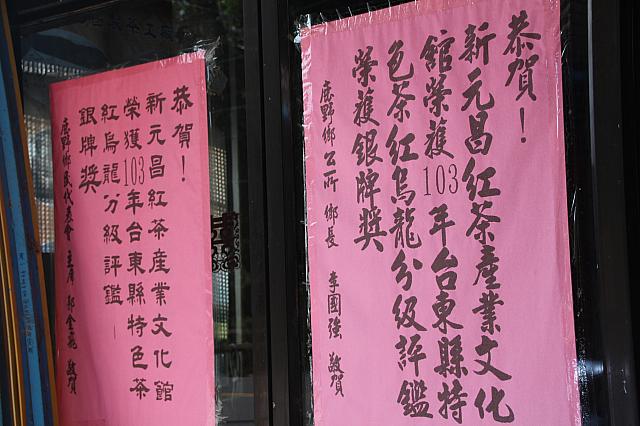 恭賀！
新元昌紅茶產業文化
館榮獲103年台東縣特
色茶紅烏龍分級評鑑
榮獲銀牌獎
鹿野鄉公所 鄉長 李國強 敬賀
恭賀！
新元昌紅茶產業文化館
榮獲103年台東縣特色茶
紅烏龍分級評鑑－
銀牌獎
鹿野鄉民代表會 主席 邱金飛 敬賀